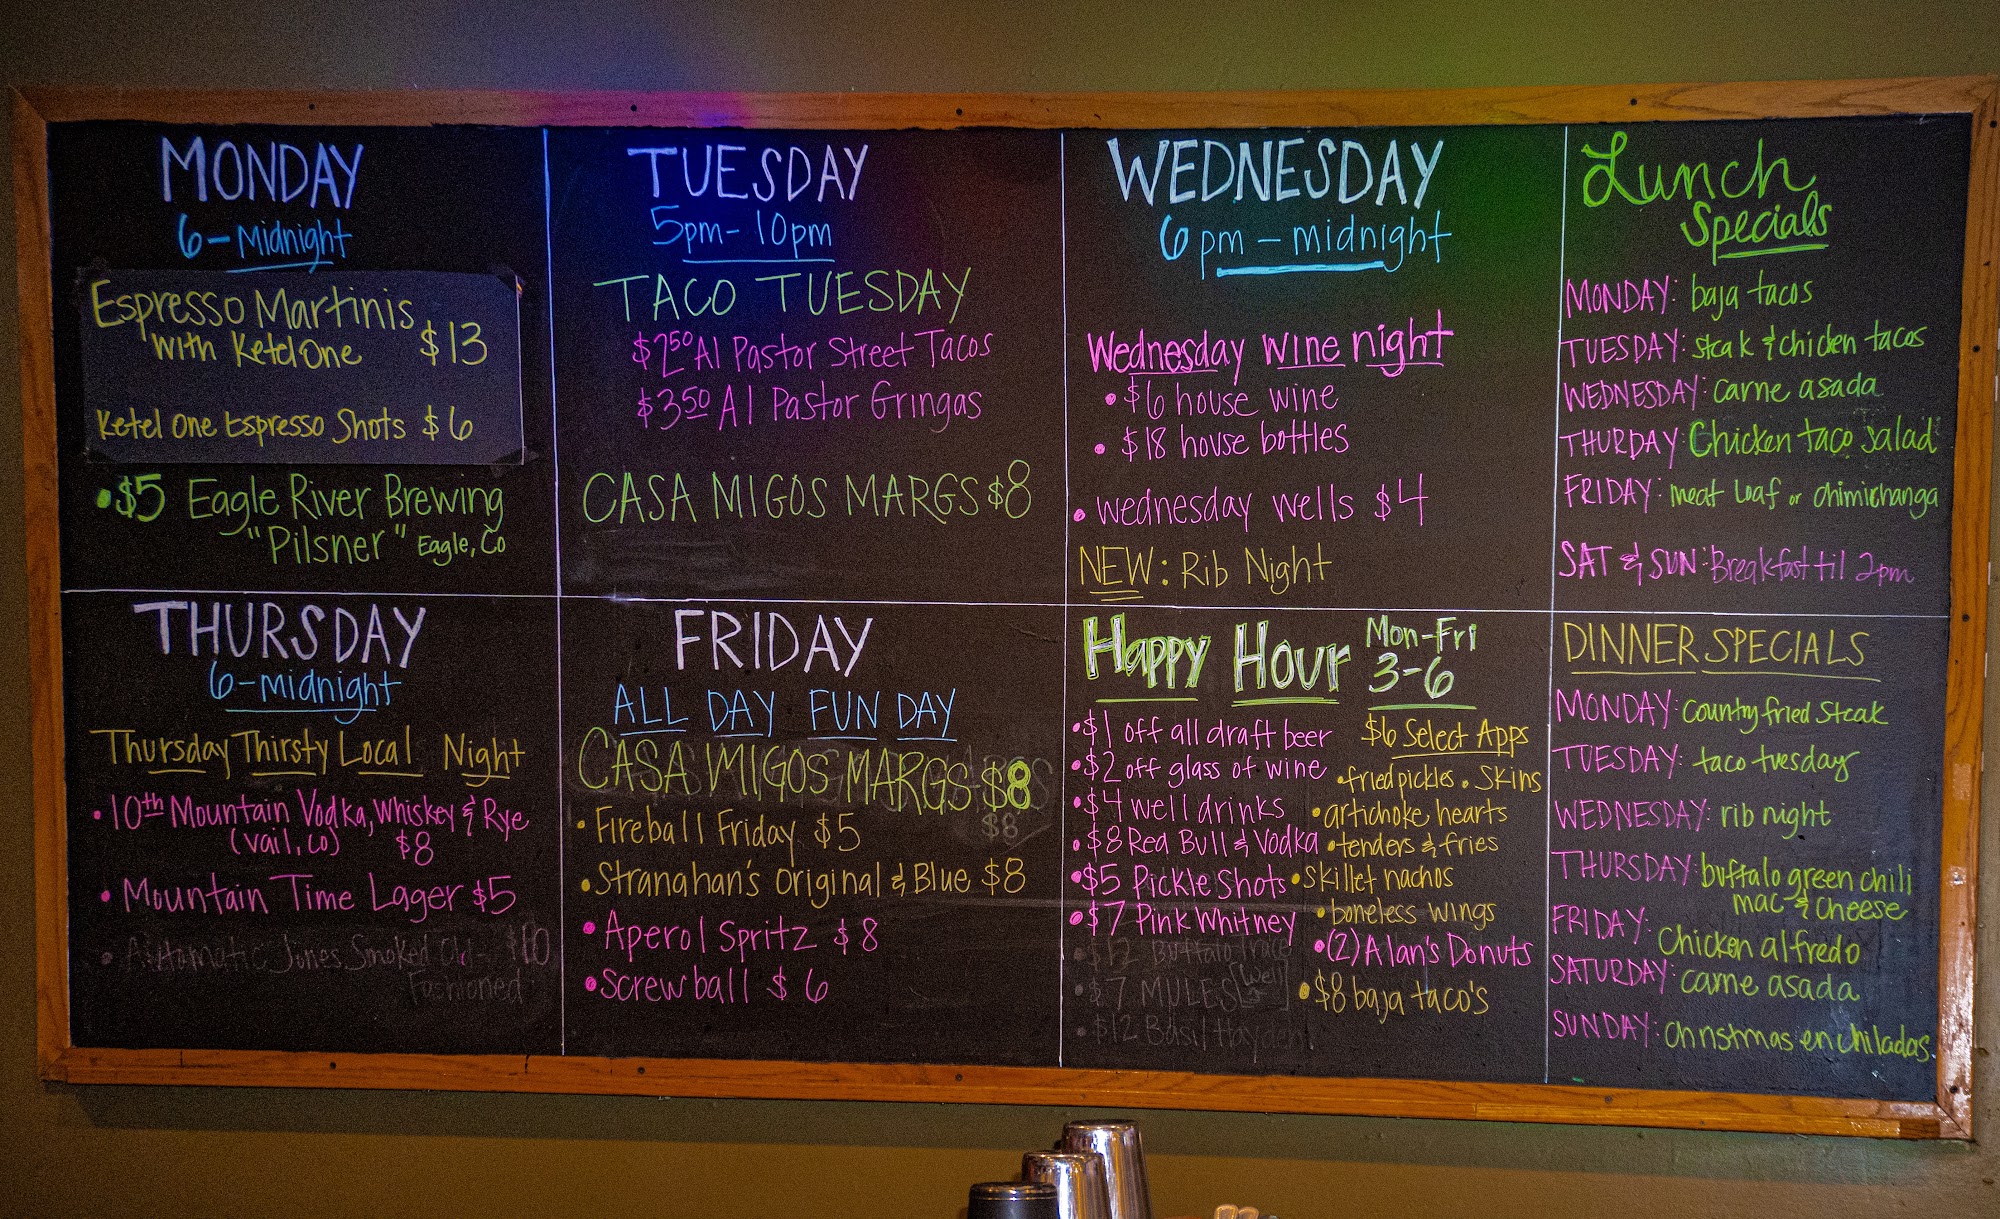 MONDAY
6-Midnight
Espresso Martinis
with Ketel One $13
Ketel One Espresso Shots $6
•$5 Eagle River Brewing
"Pilsner" Eagle, Co
TUESDAY
5pm-10pm
TACO TUESDAY
$2⁵⁰ Al Pastor Street Tacos
$3⁵⁰ Al Pastor Gringas
CASA MIGOS MARGS $8
WEDNESDAY
6pm-midnight
Wednesday wine night
• $6 house wine
• $18 house bottles
• Wednesday wells $4
NEW: Rib Night
Lunch
Specials
MONDAY: baja tacos
TUESDAY: steak & chicken tacos
WEDNESDAY: carne asada
THURDAY: Chicken taco salad
FRIDAY: meat loaf or chimichanga
SAT & SUN: Breakfast til 2pm
THURSDAY
6-midnight
Thursday Thirsty Local Night
• 10th Mountain Vodka, Whiskey & Rye
(Vail, Co) $8
• Mountain Time Lager $5
• Automatic Jones Smoked Old-
Fashioned
FRIDAY
ALL DAY FUN DAY
CASA MIGOS MARGS $8
• Fireball Friday $5
$8
• Stranahan's Original & Blue $8
• Aperol Spritz $8
• Screwball $6
Happy Hour Mon-Fri
3-6
• $1 off all draft beer
• $2 off glass of wine
• $4 well drinks
• $8 Red Bull & Vodka
• $5 Pickle Shots
• $7 Pink Whitney
• $12 Buffalo Trace
• $7 MULES [Well]
• $12 Basil Hayden
$6 Select Apps
• fried pickles • Skins
• artichoke hearts
• tenders & fries
• skillet nachos
• boneless wings
• (2) Alan's Donuts
• $8 baja taco's
DINNER SPECIALS
MONDAY: Country fried Steak
TUESDAY: taco tuesday
WEDNESDAY: rib night
THURSDAY: buffalo green chili
mac & cheese
FRIDAY: Chicken alfredo
SATURDAY: carne asada
SUNDAY: christmas enchiladas